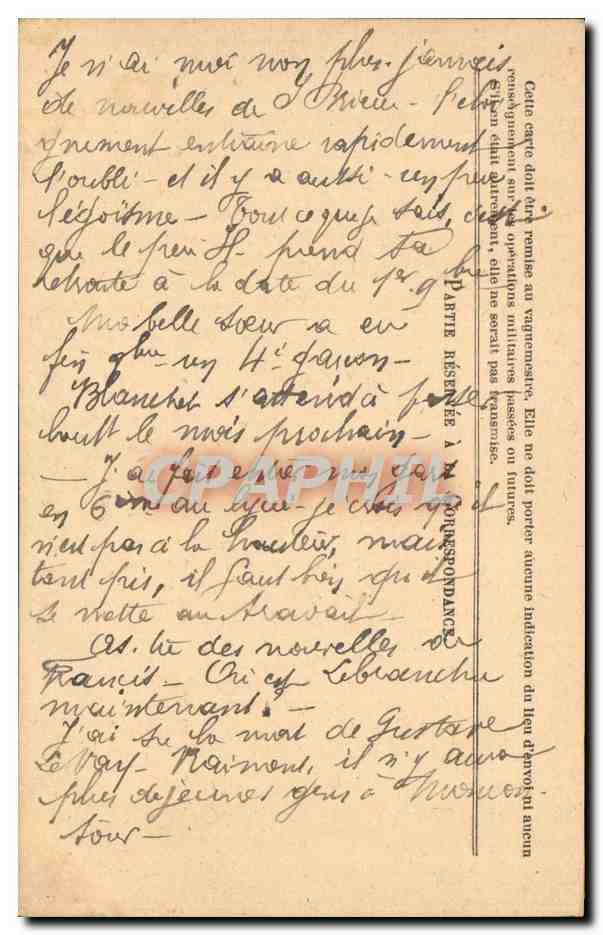 Je n'ai moi non plus jamais
de nouvelles de St Brieuc - l'éloi
gnement entraîne rapidement
l'oubli - et il y a aussi - un peu
l'égoïsme - Tout ce que je sais, c'est
que le H. prend sa
retraite à la date du 1er 9bre
Ma belle soeur a eu
fin 9bre un 4e garçon -
Blanchet s'attend à
le mois prochain -
- J'ai fait entrer mon gars
en 6ème au lycée - je crois qu'il
n'est pas à la hauteur, mais
tant pis, il faut bien qu'il
se mette au travail -
As-tu des nouvelles de
Francis - Où est Leblanche
maintenant ? -
J'ai su la mort de Gustave
Le Vay - Vraiment, il n'y aura
plus de jeunes gens à Moncon-
tour -
PARTIE RÉSERVÉE À LA CORRESPONDANCE
Cette carte doit être remise au vaguemestre. Elle ne doit porter aucune indication du lieu d'envoi ni aucun
renseignement sur les opérations militaires passées ou futures.
S'il en était autrement, elle ne serait pas transmise.
CPAPHIL